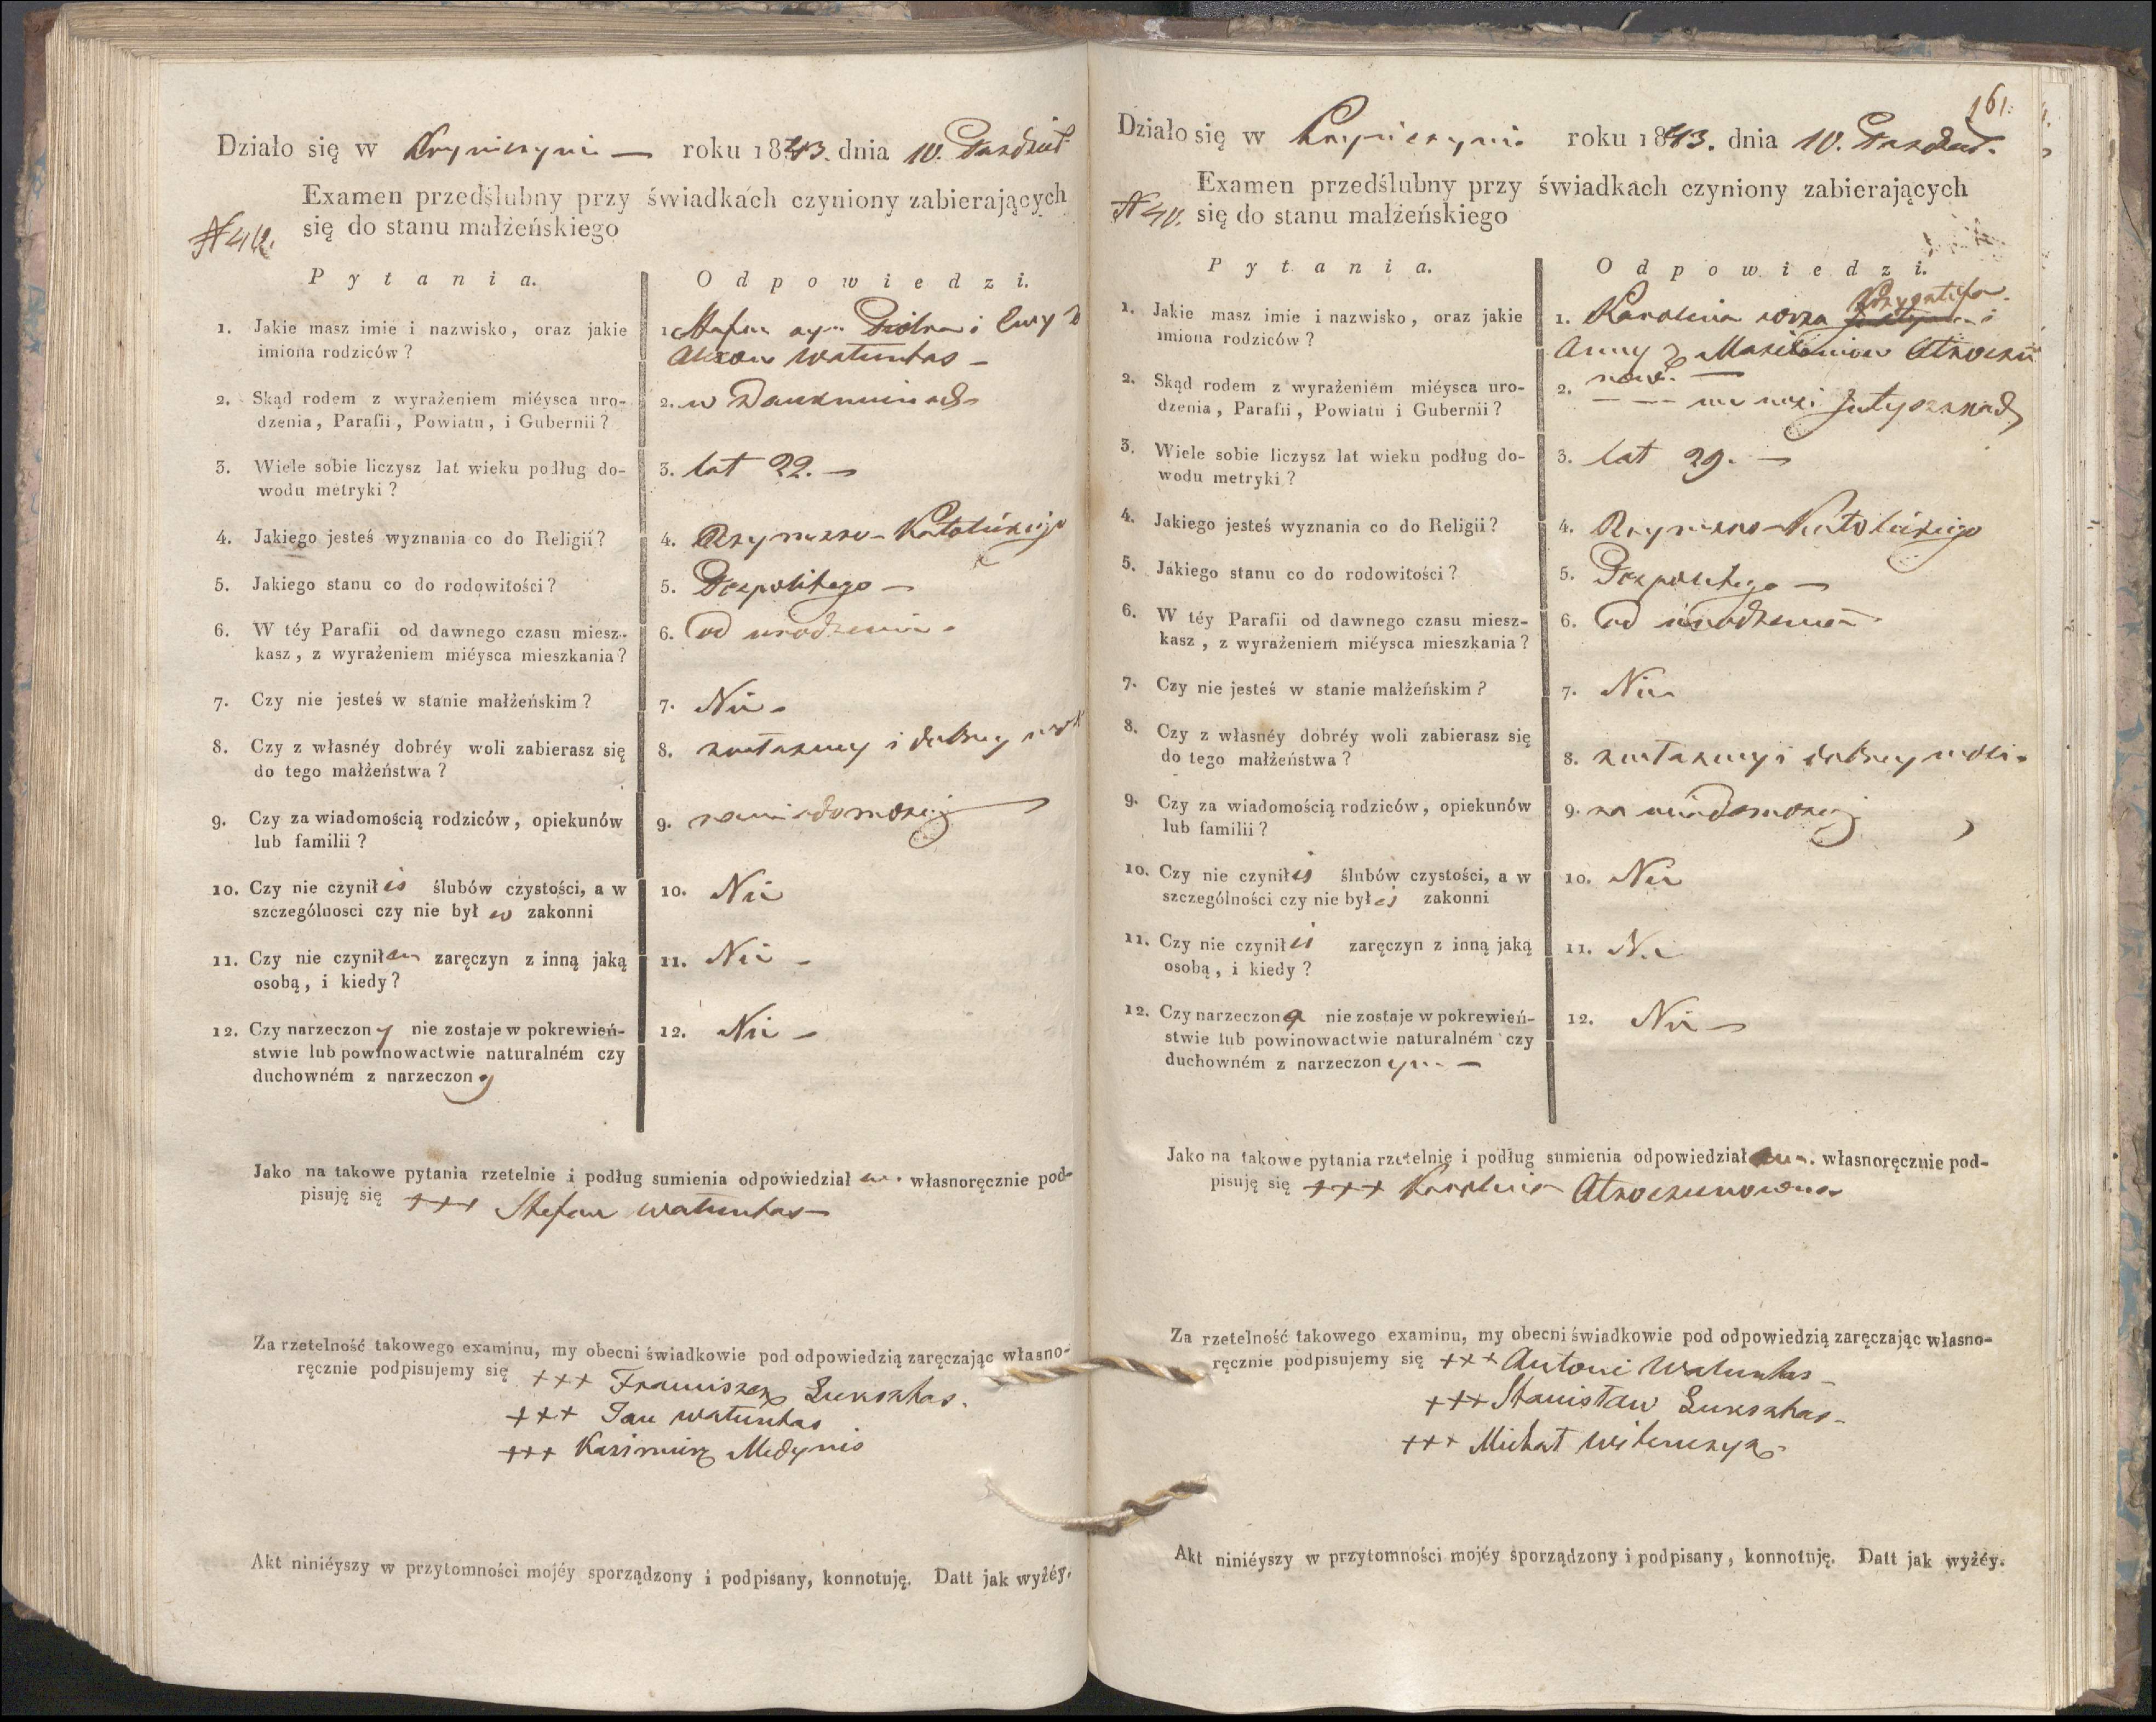 Działo się w roku 1843. dnia 10. Paździer.
Examen przedślubny przy świadkach czyniony zabierających
się do stanu małżeńskiego
N 40.
Pytania. Odpowiedzi.
1. Jakie masz imie i nazwisko, oraz jakie
imiona rodziców?
1. Stefan syn Piotra i Ewy z
Watuntas –
2. Skąd rodem z wyrażeniem miéysca uro-
dzenia, Parafii, Powiatu, i Gubernii?
2. w
3. Wiele sobie liczysz lat wieku podług do-
wodu metryki?
3. lat 22. –
4. Jakiego jesteś wyznania co do Religii?
4. Rzymsko-Katolickiego
5. Jakiego stanu co do rodowitości?
5. Pospolitego –
6. W téy Parafii od dawnego czasu miesz-
kasz, z wyrażeniem miéysca mieszkania?
6. od urodzenia.
7. Czy nie jesteś w stanie małżeńskim?
7. Nie –
8. Czy z własnéy dobréy woli zabierasz się
do tego małżeństwa?
8. z własney i dobrey woli
9. Czy za wiadomością rodziców, opiekunów
lub familii?
9. za wiadomością
10. Czy nie czynił eś ślubów czystości, a w
szczególnosci czy nie był eś zakonni
10. Nie
11. Czy nie czynił zaręczyn z inną jaką
osobą, i kiedy?
11. Nie –
12. Czy narzeczony nie zostaje w pokrewień-
stwie lub powinowactwie naturalném czy
duchowném z narzeczoną
12. Nie –
Jako na takowe pytania rzetelnie i podług sumienia odpowiedział em. własnoręcznie pod-
pisuję się +++ Stefan Watuntas –
Za rzetelność takowego examinu, my obecni świadkowie pod odpowiedzią zaręczając własno-
ręcznie podpisujemy się +++ Franciszek Łuksztas.
+++ Jan Watuntas
+++ Kazimierz Medynis
Akt niniéyszy w przytomności mojéy sporządzony i podpisany, konnotuję. Datt jak wyżéy.
161.
Działo się w roku 1843. dnia 10. Paździer.
Examen przedślubny przy świadkach czyniony zabierających
się do stanu małżeńskiego
N 40.
Pytania. Odpowiedzi.
1. Jakie masz imie i nazwisko, oraz jakie
imiona rodziców?
1. Karolina córka i
Anny z
2. Skąd rodem z wyrażeniem miéysca uro-
dzenia, Parafii, Powiatu i Gubernii?
2. – – we wsi
3. Wiele sobie liczysz lat wieku podług do-
wodu metryki?
3. lat 29. –
4. Jakiego jesteś wyznania co do Religii?
4. Rzymsko-Katolickiego
5. Jakiego stanu co do rodowitości?
5. Pospolitego –
6. W téy Parafii od dawnego czasu miesz-
kasz, z wyrażeniem miéysca mieszkania?
6. od urodzenia.
7. Czy nie jesteś w stanie małżeńskim?
7. Nie
8. Czy z własnéy dobréy woli zabierasz się
do tego małżeństwa?
8. z własney i dobrey woli.
9. Czy za wiadomością rodziców, opiekunów
lub familii?
9. za wiadomością
10. Czy nie czynił eś ślubów czystości, a w
szczególności czy nie był eś zakonni
10. Nie
11. Czy nie czynił eś zaręczyn z inną jaką
osobą, i kiedy?
11. Nie
12. Czy narzeczona nie zostaje w pokrewień-
stwie lub powinowactwie naturalném czy
duchowném z narzeczonym –
12. Nie –
Jako na takowe pytania rzetelnie i podług sumienia odpowiedział własnoręcznie pod-
pisuję się +++ Karolina
Za rzetelność takowego examinu, my obecni świadkowie pod odpowiedzią zaręczając własno-
ręcznie podpisujemy się +++ Antoni Watuntas –
+++ Stanisław Łuksztas –
+++ Michał
Akt niniéyszy w przytomności mojéy sporządzony i podpisany, konnotuję. Datt jak wyżéy.